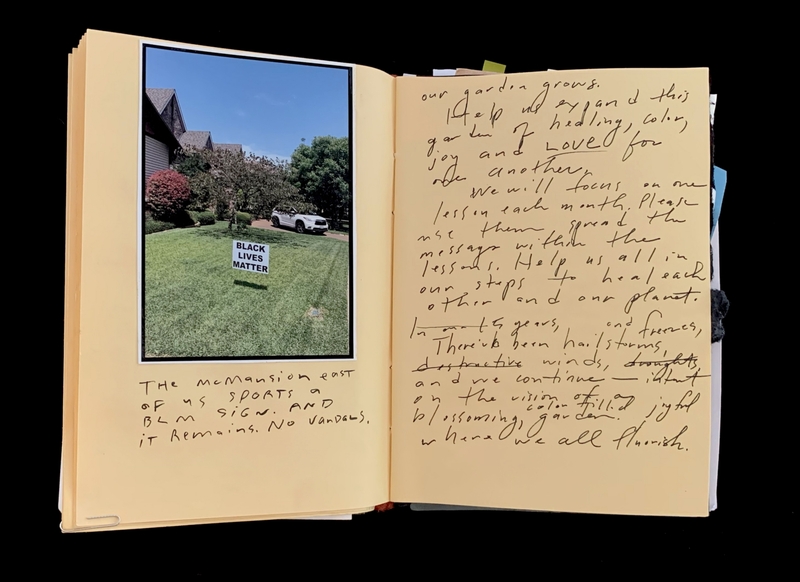 BLACK
LIVES
MATTER
THE McMANSION EAST
OF US SPORTS A
BLM SIGN. AND
IT REMAINS. NO VANDALS.
our garden grows.
Help us expand this
garden of healing, color,
joy and LOVE for
one another.
We will focus on one
lesson each month. Please
use them, spread the
message within the
lessons. Help us all in
our steps to heal each
other and our planet.
In our 15 years, and freezes,
There've been hailstorms,
destructive winds, droughts,
and we continue — intent
on the vision of a
color filled joyful
blossoming garden
where we all flourish.